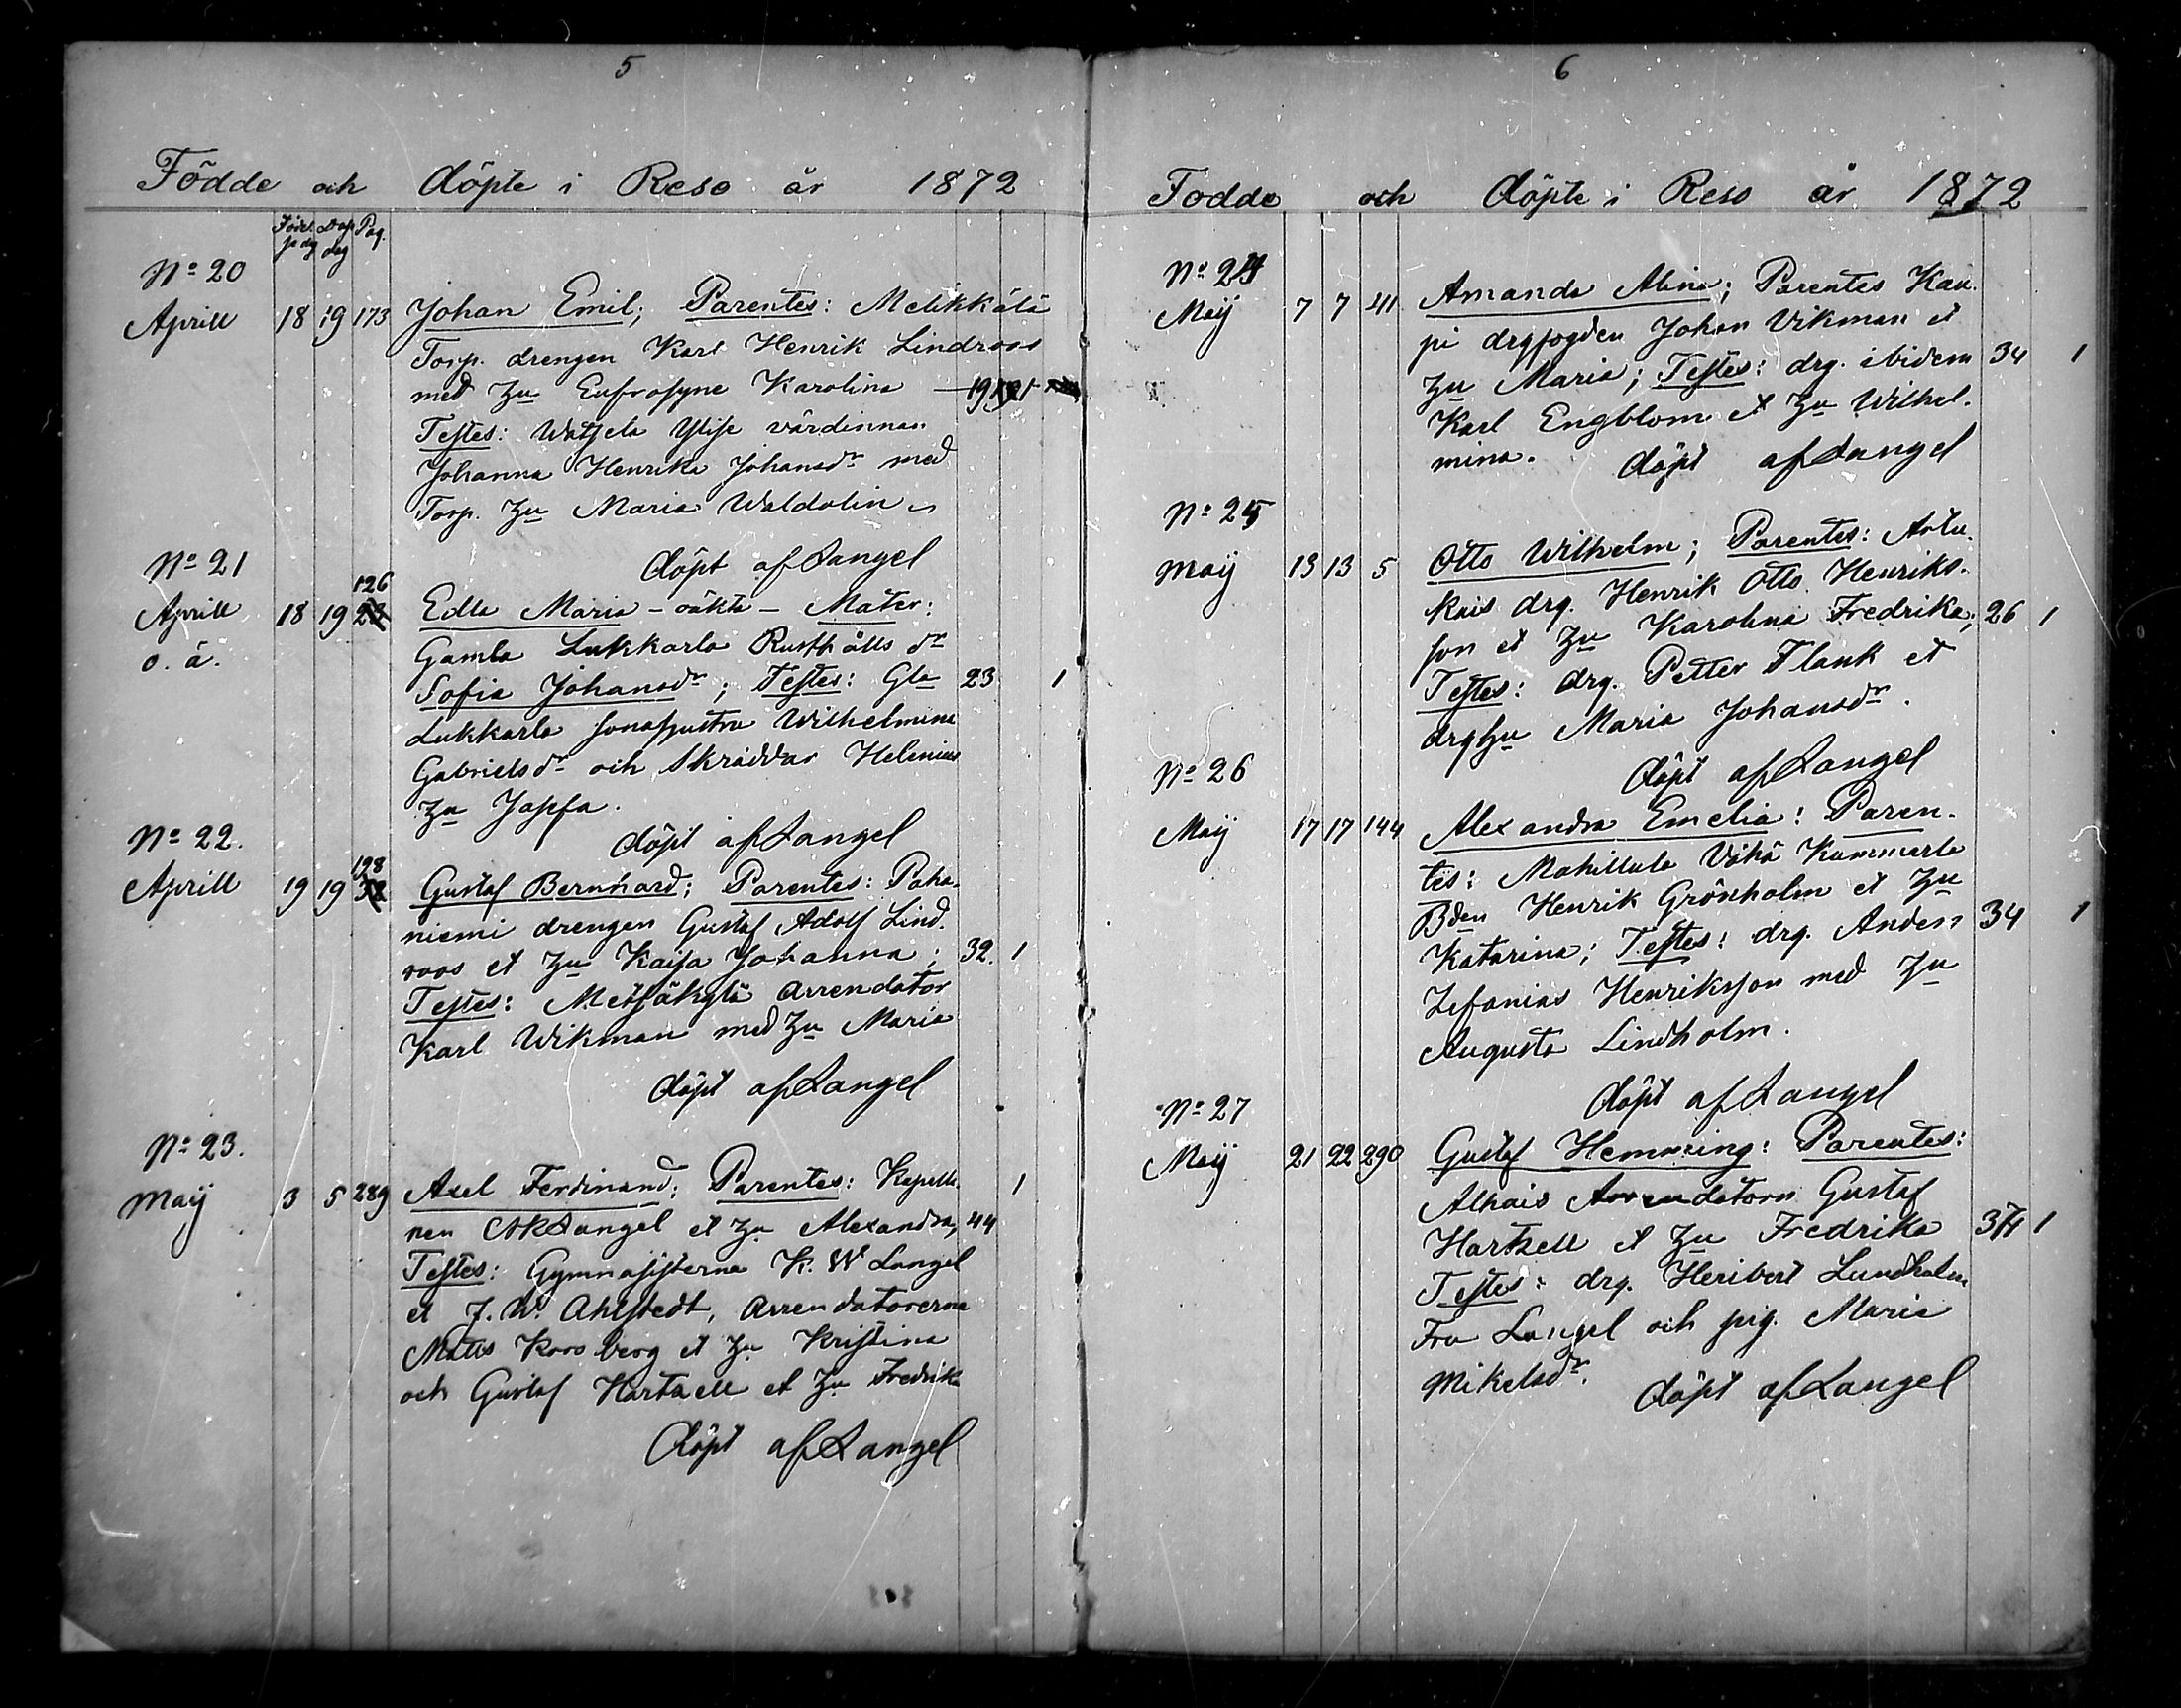 5
Födde och döpte i Reso år 1872
Födelsedag Dopdag Pag.
No 20
Aprill 18 19 173 Johan Emil; Parentes: Melikkälä
Torp. drengen Karl Henrik Lindroos
med Hu Eufrosyne Karolina — 19 1
Testes: Watsela Ylise värdinnan
Johanna Henrika Johansdr med
Torp. Hu Maria Waldolin
döpt af Langel
No 21
126
Aprill 18 19 23 Edla Maria – oäkta – Mater:
o. ä. Gamla Lukkarla Rusthålls dr
Sofia Johansdr; Testes: Gla 23 1
Lukkarla Wilhelmina
Gabrielsdr och Skräddar Helenius
Hu Josefa.
döpt af Langel
No 22.
198
Aprill 19 19 32 Gustaf Bernhard; Parentes: Poha-
niemi drengen Gustaf Adolf Lind-
roos et Hu Kaisa Johanna; 32. 1
Testes: Metsäkylä Arrendator
Karl Wikman med Hu Maria
döpt af Langel
No 23.
Maij 3 5 289 Axel Ferdinand; Parentes: Kapella-
nen Langel et Hu Alexandra, 44 1
Testes: Gymnasisterne K. W Langel
et J. W. Ahlstedt, Arrendatorerna
Matts Kroo berg et Hu Kristina
och Gustaf Hartzell et Hu Fredrika
döpt af Langel
6
Födde och döpte i Reso år 1872
No 24
Maij 7 7 41 Amanda Alina; Parentes Kau-
pi drgfogden Johan Vikman et
Hu Maria; Testes: drg. ibidem 34 1
Karl Engblom et Hu Wilhel-
mina. döpt af Langel
No 25
Maij 13 13 5 Otto Wilhelm; Parentes: Artu-
kais drg. Henrik Otto Henriks-
son et Hu Karolina Fredrika; 26 1
Testes: drg. Petter Flank et
drghu Maria Johansdr.
döpt af Langel
No 26
Maij 17 17 144 Alexandra Emelia: Paren-
tes: Mahittula Vähä Kammarla
Bden Henrik Grönholm et Hu
Katarina; Testes: drg. Anders 34 1
Zefanias Henriksson med Hu
Augusta Lindholm.
döpt af Langel
No 27
Maij 21 22 290 Gustaf Hemming: Parentes:
Alhais Arrendatorn Gustaf
Hartzell et Hu Fredrika 37 1
Testes: drg. Heribert Lundholm
Fru Langel och pig. Maria
Mikelsdr. döpt af Langel